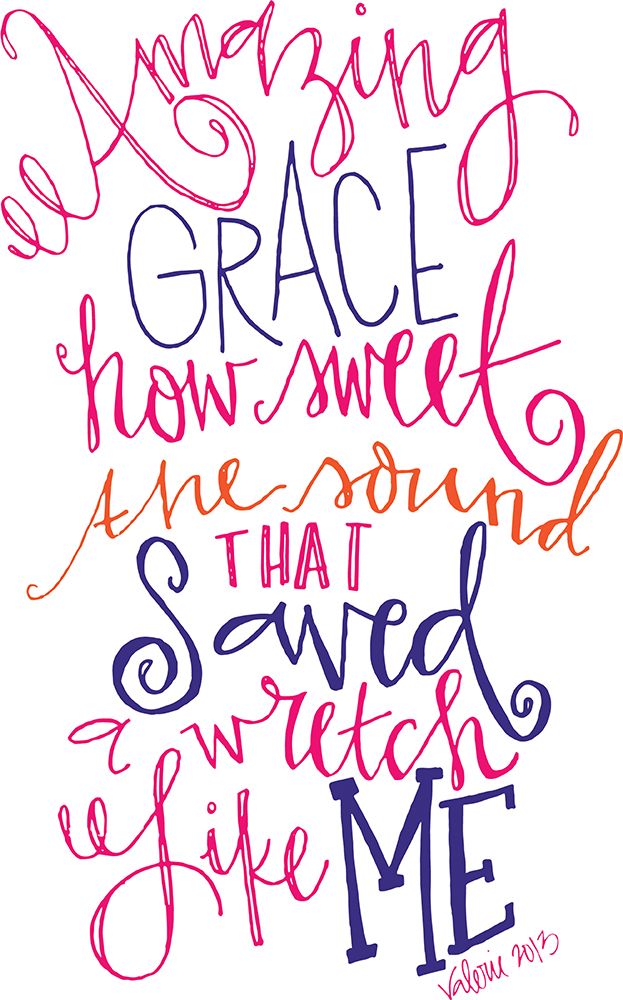 Amazing
GRACE
how sweet
the sound
THAT
Saved
a wretch
like ME
Valerie 2013